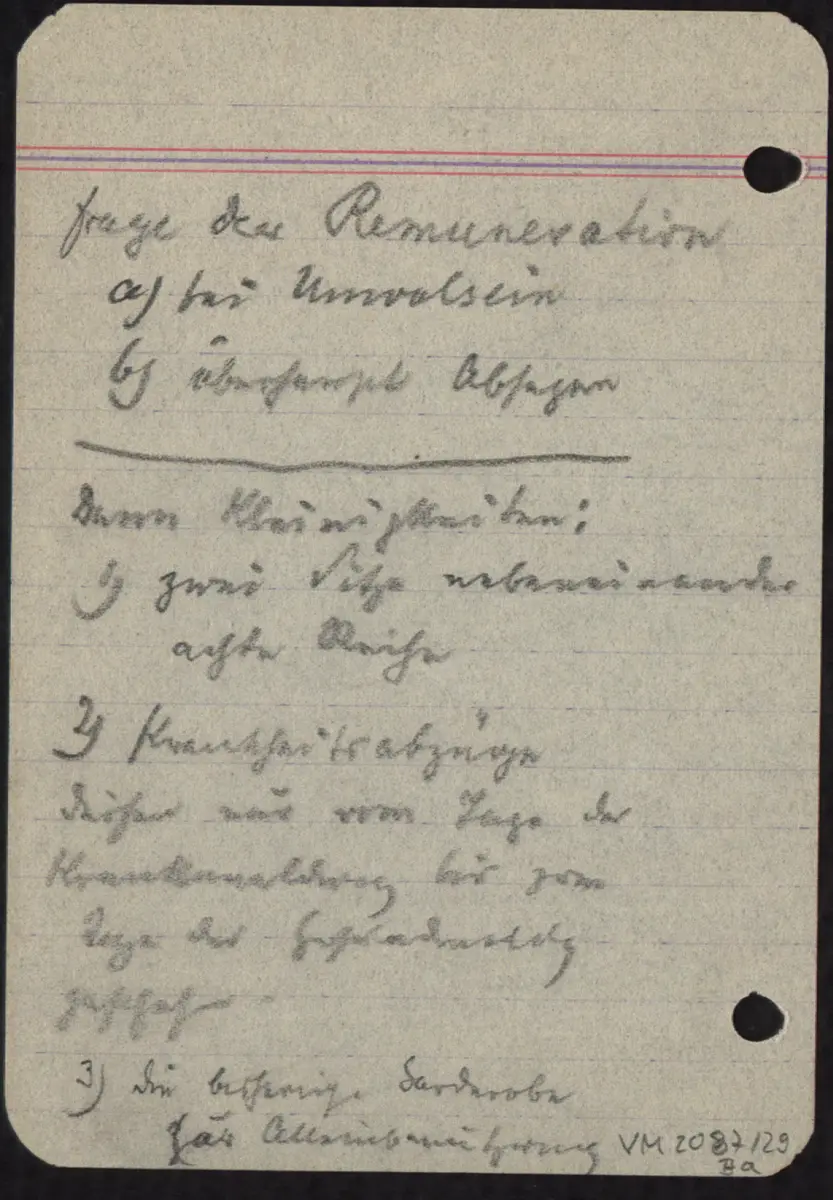 Frage der Remuneration
a) bei Unwolsein
b) überhaupt Absagen
Dann Kleinigkeiten:
1) zwei Sitze nebeneinander
achte Reihe
2) Krankheitsabzüge
dürfen nur vom Tage der
Krankmeldung bis zum
Tage der Gesundmeldg
geschehen
3) die bisherige Garderobe
zur Alleinbenützung
VM 2087/29
Ha